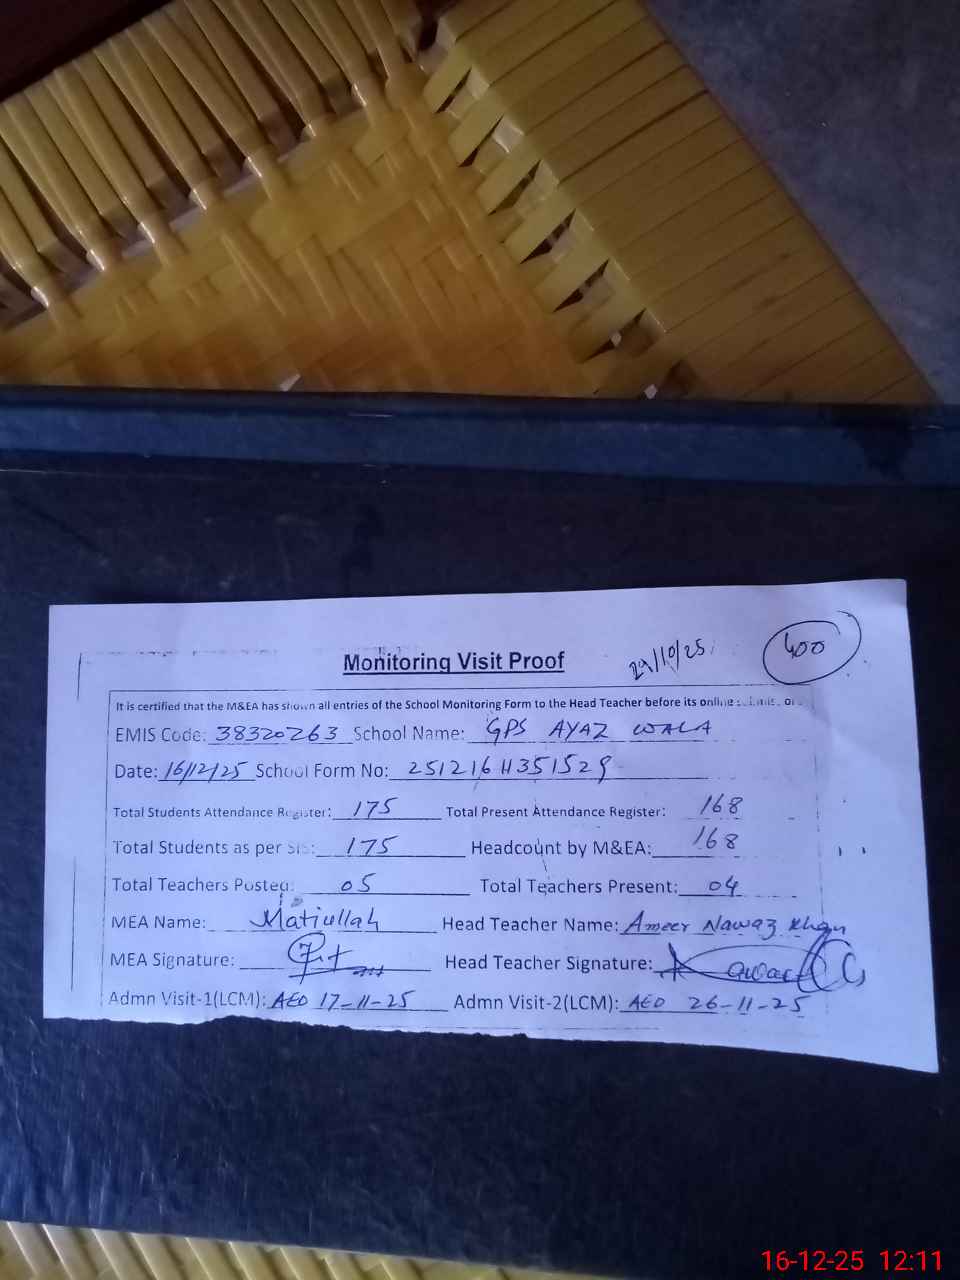 Monitoring Visit Proof
29/10/25
400
It is certified that the M&EA has shown all entries of the School Monitoring Form to the Head Teacher before its online
EMIS Code: 38320263 School Name: GPS AYAZ WALA
Date: 16/12/25 School Form No: 25121611351529
Total Students Attendance Register: 175 Total Present Attendance Register: 168
Total Students as per SIS: 175 Headcount by M&EA: 168
Total Teachers Posted: 05 Total Teachers Present: 04
MEA Name: Matiullah Head Teacher Name: Ameer Nawaz Khan
MEA Signature: Head Teacher Signature:
Admn Visit-1(LCM): AEO 17-11-25 Admn Visit-2(LCM): AEO 26-11-25
16-12-25 12:11